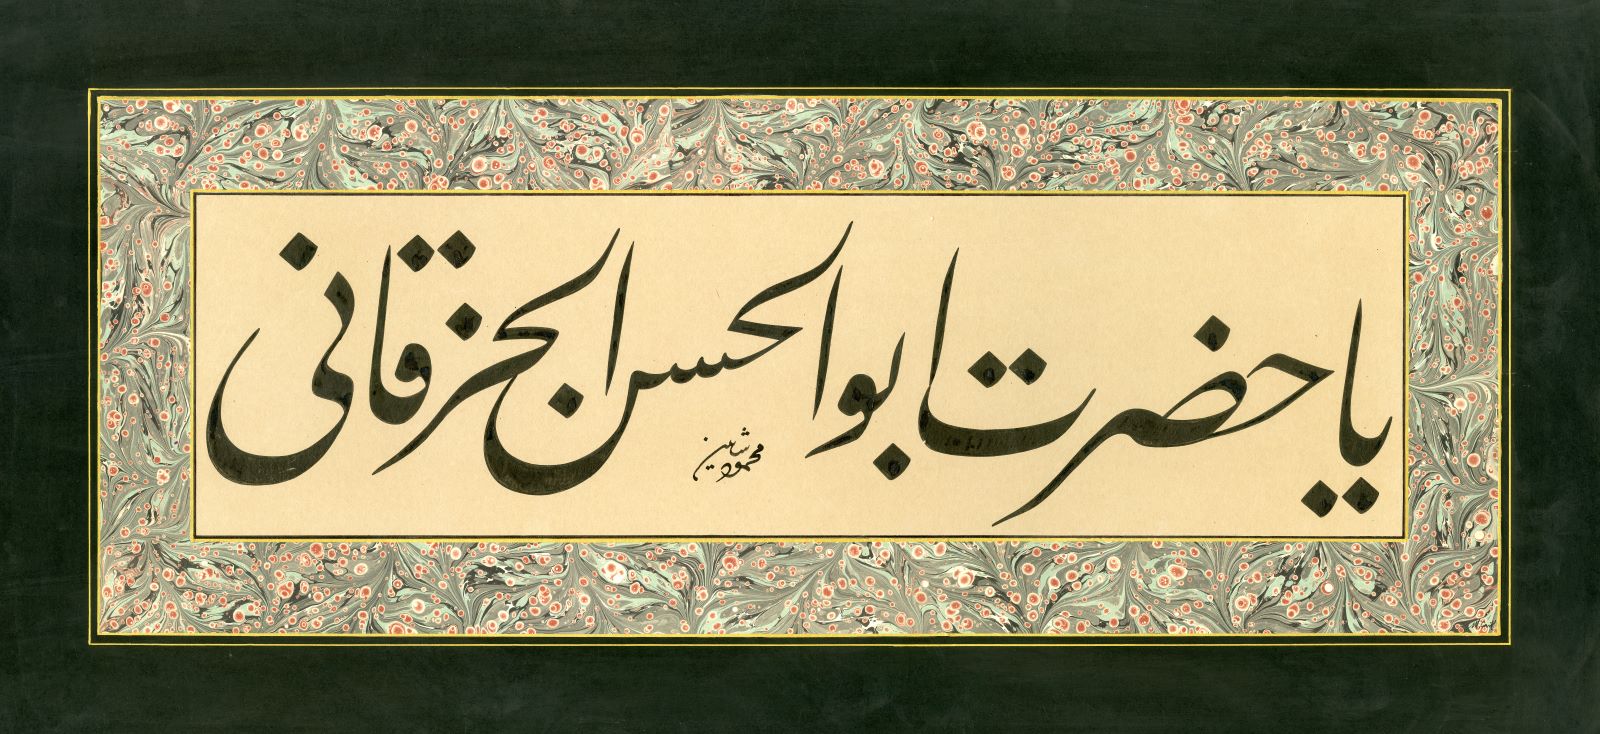 یا حضرت ابو الحسن الخرقانی
محمود شاهین